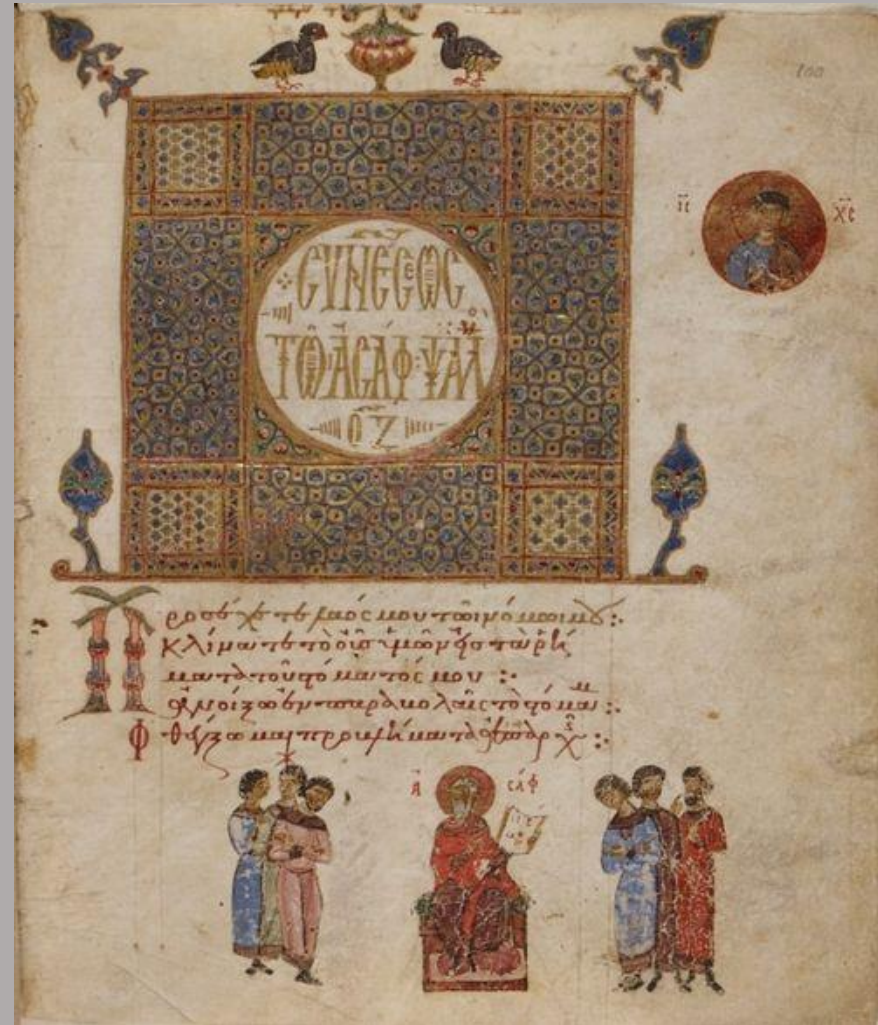 100
ΙC ΧC
CΥΝΕCΕΩC
ΤΩ ΑCΑΦ ΨΑΛ
ΟΖ
Προσέχετε λαός μου τῶ νόμω μου:·
κλίνατε τὸ οὖς ὑμῶν εἰς τὰ ῥή
ματα τοῦ στόματός μου:·
ἀνοίξω ἐν παραβολαῖς τὸ στόμα μου:·
Φθέγξομαι προβλήματα ἀπ' ἀρχῆς:·
ΑCΑΦ